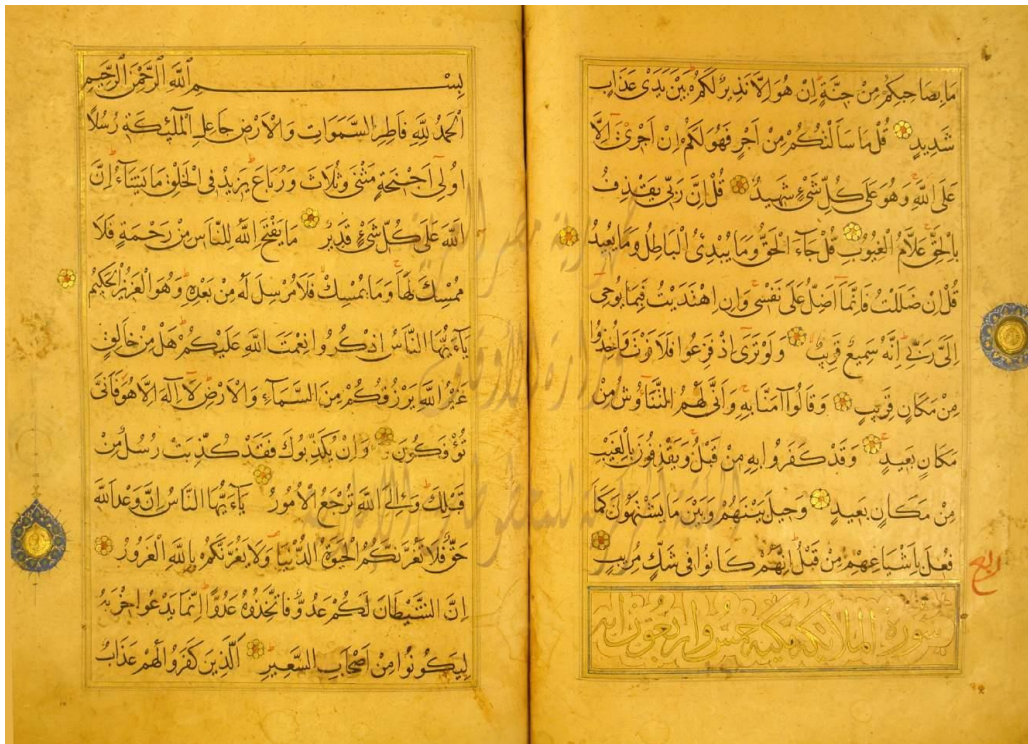 ما بصاحبكم من جنة إن هو إلا نذير لكم بين يدي عذاب
شديد قل ما سألتكم من أجر فهو لكم إن أجري إلا
على الله وهو على كل شيء شهيد قل إن ربي يقذف
بالحق علام الغيوب قل جاء الحق وما يبدئ الباطل وما يعيد
قل إن ضللت فإنما أضل على نفسي وإن اهتديت فبما يوحي
إلي ربي إنه سميع قريب ولو ترى إذ فزعوا فلا فوت وأخذوا
من مكان قريب وقالوا آمنا به وأنى لهم التناوش من
مكان بعيد وقد كفروا به من قبل ويقذفون بالغيب
من مكان بعيد وحيل بينهم وبين ما يشتهون كما
فعل بأشياعهم من قبل إنهم كانوا في شك مريب
ربع
سورة الملائكة مكية خمس وأربعون آية
بسم الله الرحمن الرحيم
الحمد لله فاطر السموات والأرض جاعل الملئكة رسلا
أولي أجنحة مثنى وثلاث ورباع يزيد في الخلق ما يشاء إن
الله على كل شيء قدير ما يفتح الله للناس من رحمة فلا
ممسك لها وما يمسك فلا مرسل له من بعده وهو العزيز الحكيم
يا أيها الناس اذكروا نعمت الله عليكم هل من خالق
غير الله يرزقكم من السماء والأرض لا إله إلا هو فأنى
تؤفكون وإن يكذبوك فقد كذبت رسل من
قبلك وإلى الله ترجع الأمور يا أيها الناس إن وعد الله
حق فلا تغرنكم الحيوة الدنيا ولا يغرنكم بالله الغرور
إن الشيطان لكم عدو فاتخذوه عدوا إنما يدعوا حزبه
ليكونوا من أصحاب السعير الذين كفروا لهم عذاب